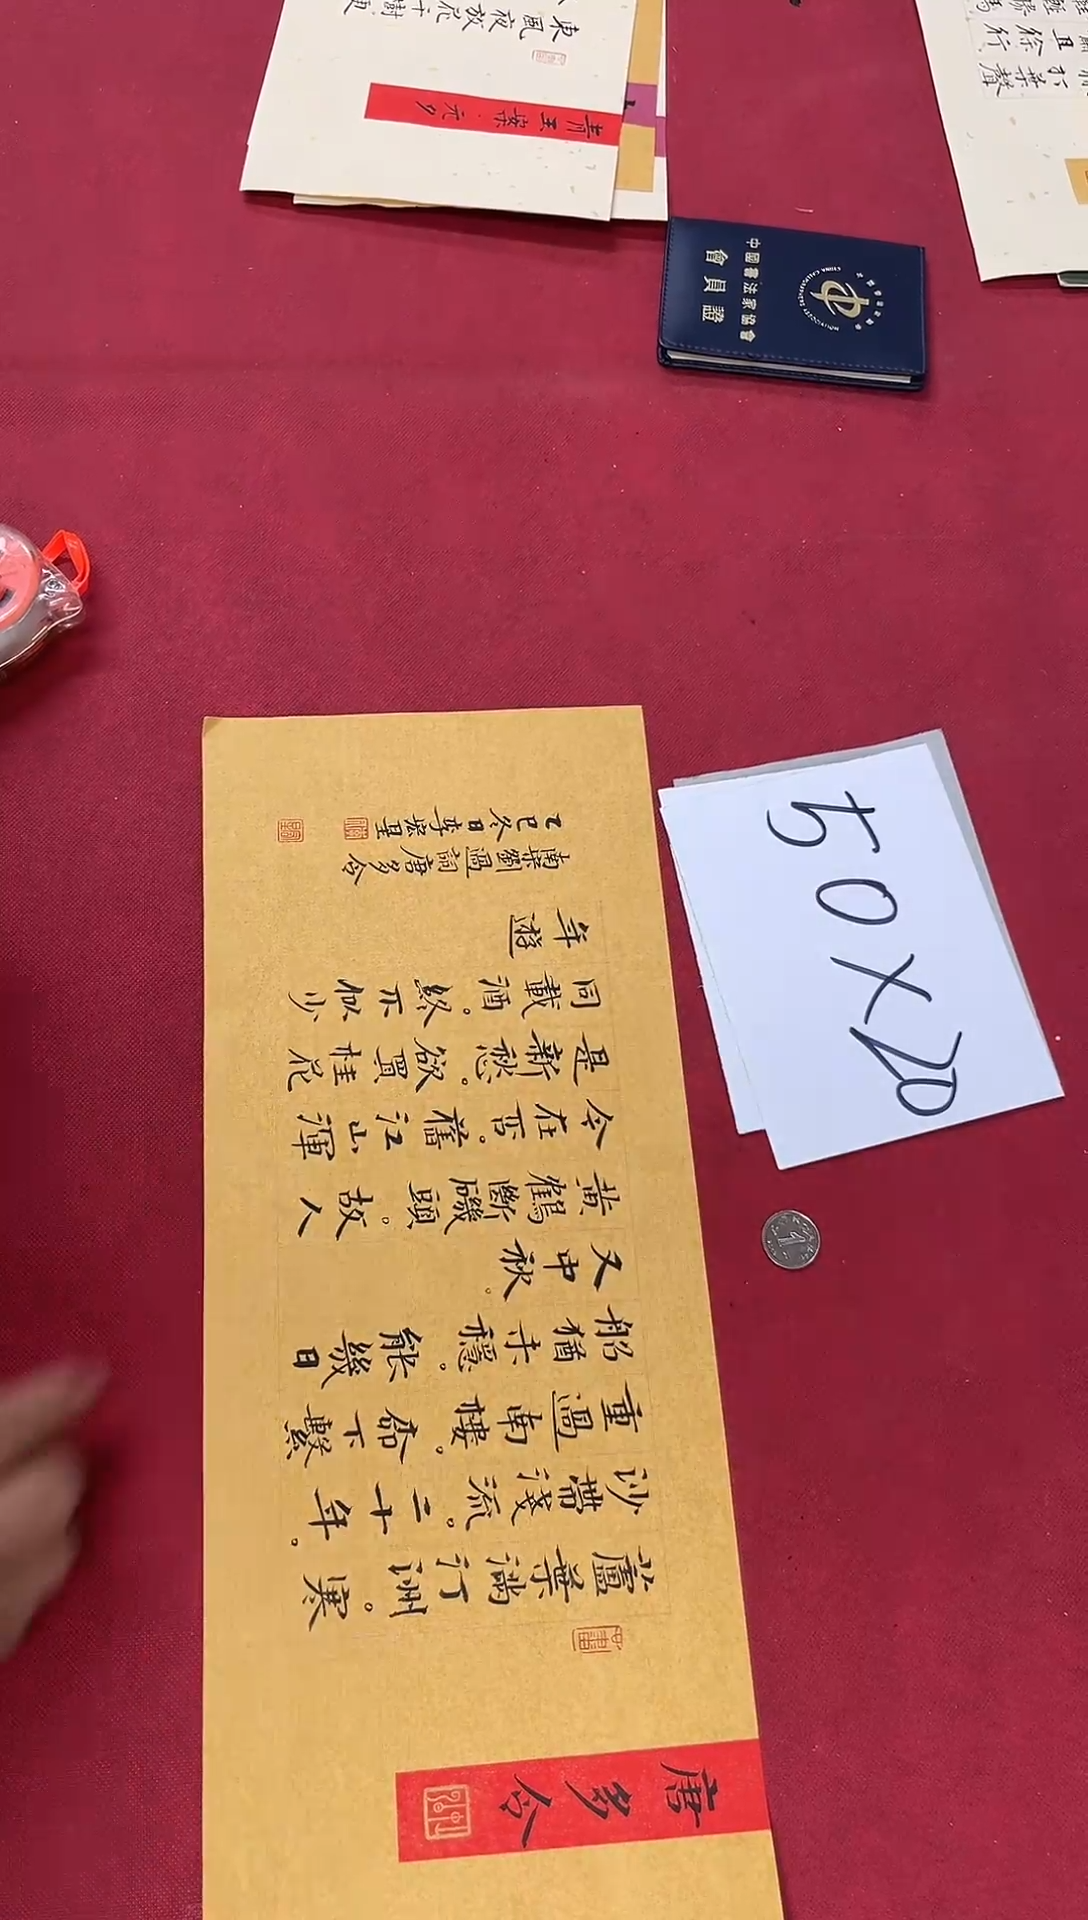 唐多令
蘆葉滿汀洲。寒
沙帶淺流。二十年。
重過南樓。柳下繫
船猶未穩。能幾日
又中秋。
黄鶴斷磯頭。故人
今在否。舊江山渾
是新愁。欲買桂花
同載酒。終不似少
年遊
南宋劉過詞唐多令
乙巳冬日李宏
50×20
中國書法家協會
會員證
CHINA CALLIGRAPHERS ASSOCIATION
青玉案·元夕
東風夜放花千樹更
打葉聲
嘯且徐行
鞋勝馬
1